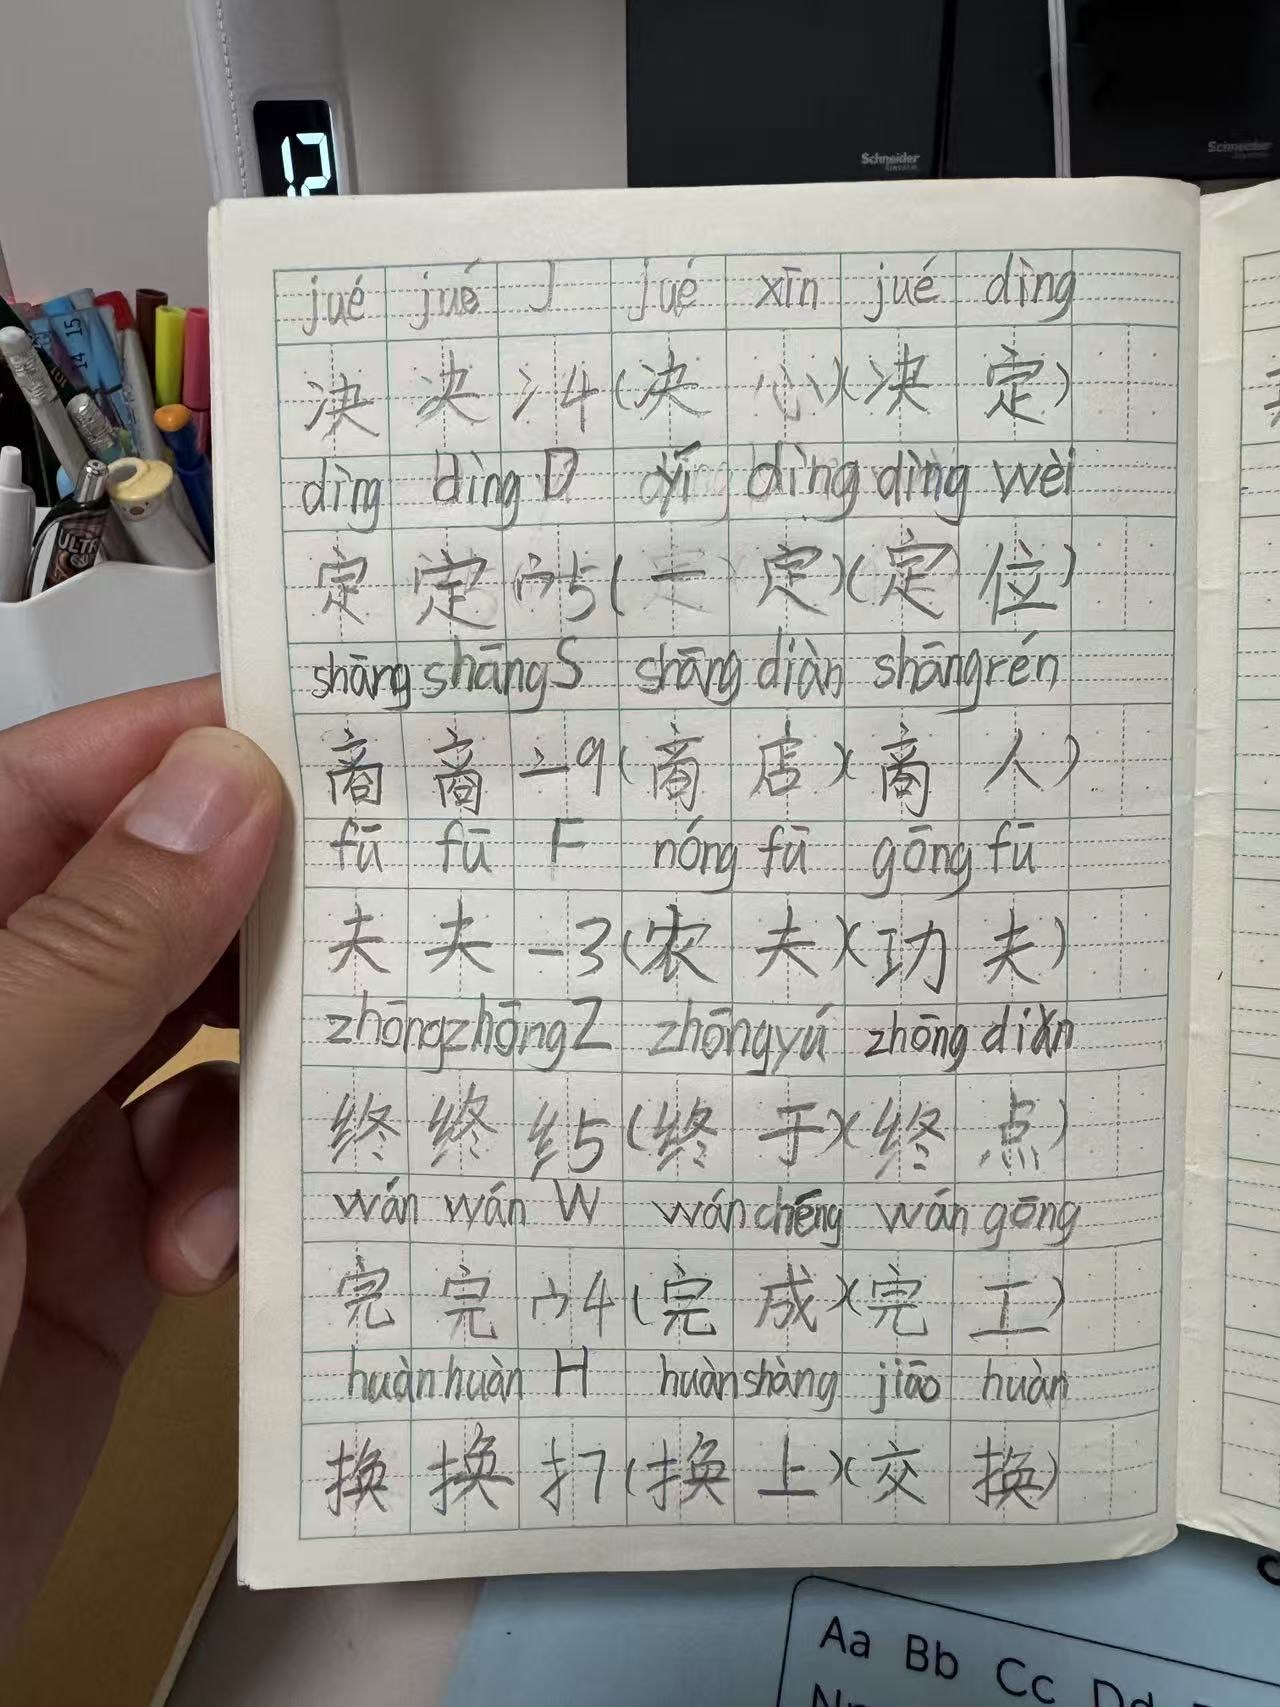 12
Schneider
Schneider
ULTR
jué jué J jué xīn jué dìng
决 决 冫4(决 心)(决 定)
dìng dìng D yí dìng dìng wèi
定 定 宀5(一 定)(定 位)
shāng shāng S shāng diàn shāng rén
商 商 亠9(商 店)(商 人)
fū fū F nóng fū gōng fū
夫 夫 一3(农 夫)(功 夫)
zhōng zhōng Z zhōng yú zhōng diǎn
终 终 纟5(终 于)(终 点)
wán wán W wán chéng wán gōng
完 完 宀4(完 成)(完 工)
huàn huàn H huàn shàng jiāo huàn
换 换 扌7(换 上)(交 换)
Aa Bb Cc Dd